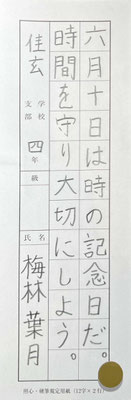 六月十日は時の記念日だ。
時間を守り大切にしよう。
学校
支部
佳玄
四年
級
氏名
梅林葉月
用紙（12字×2行）